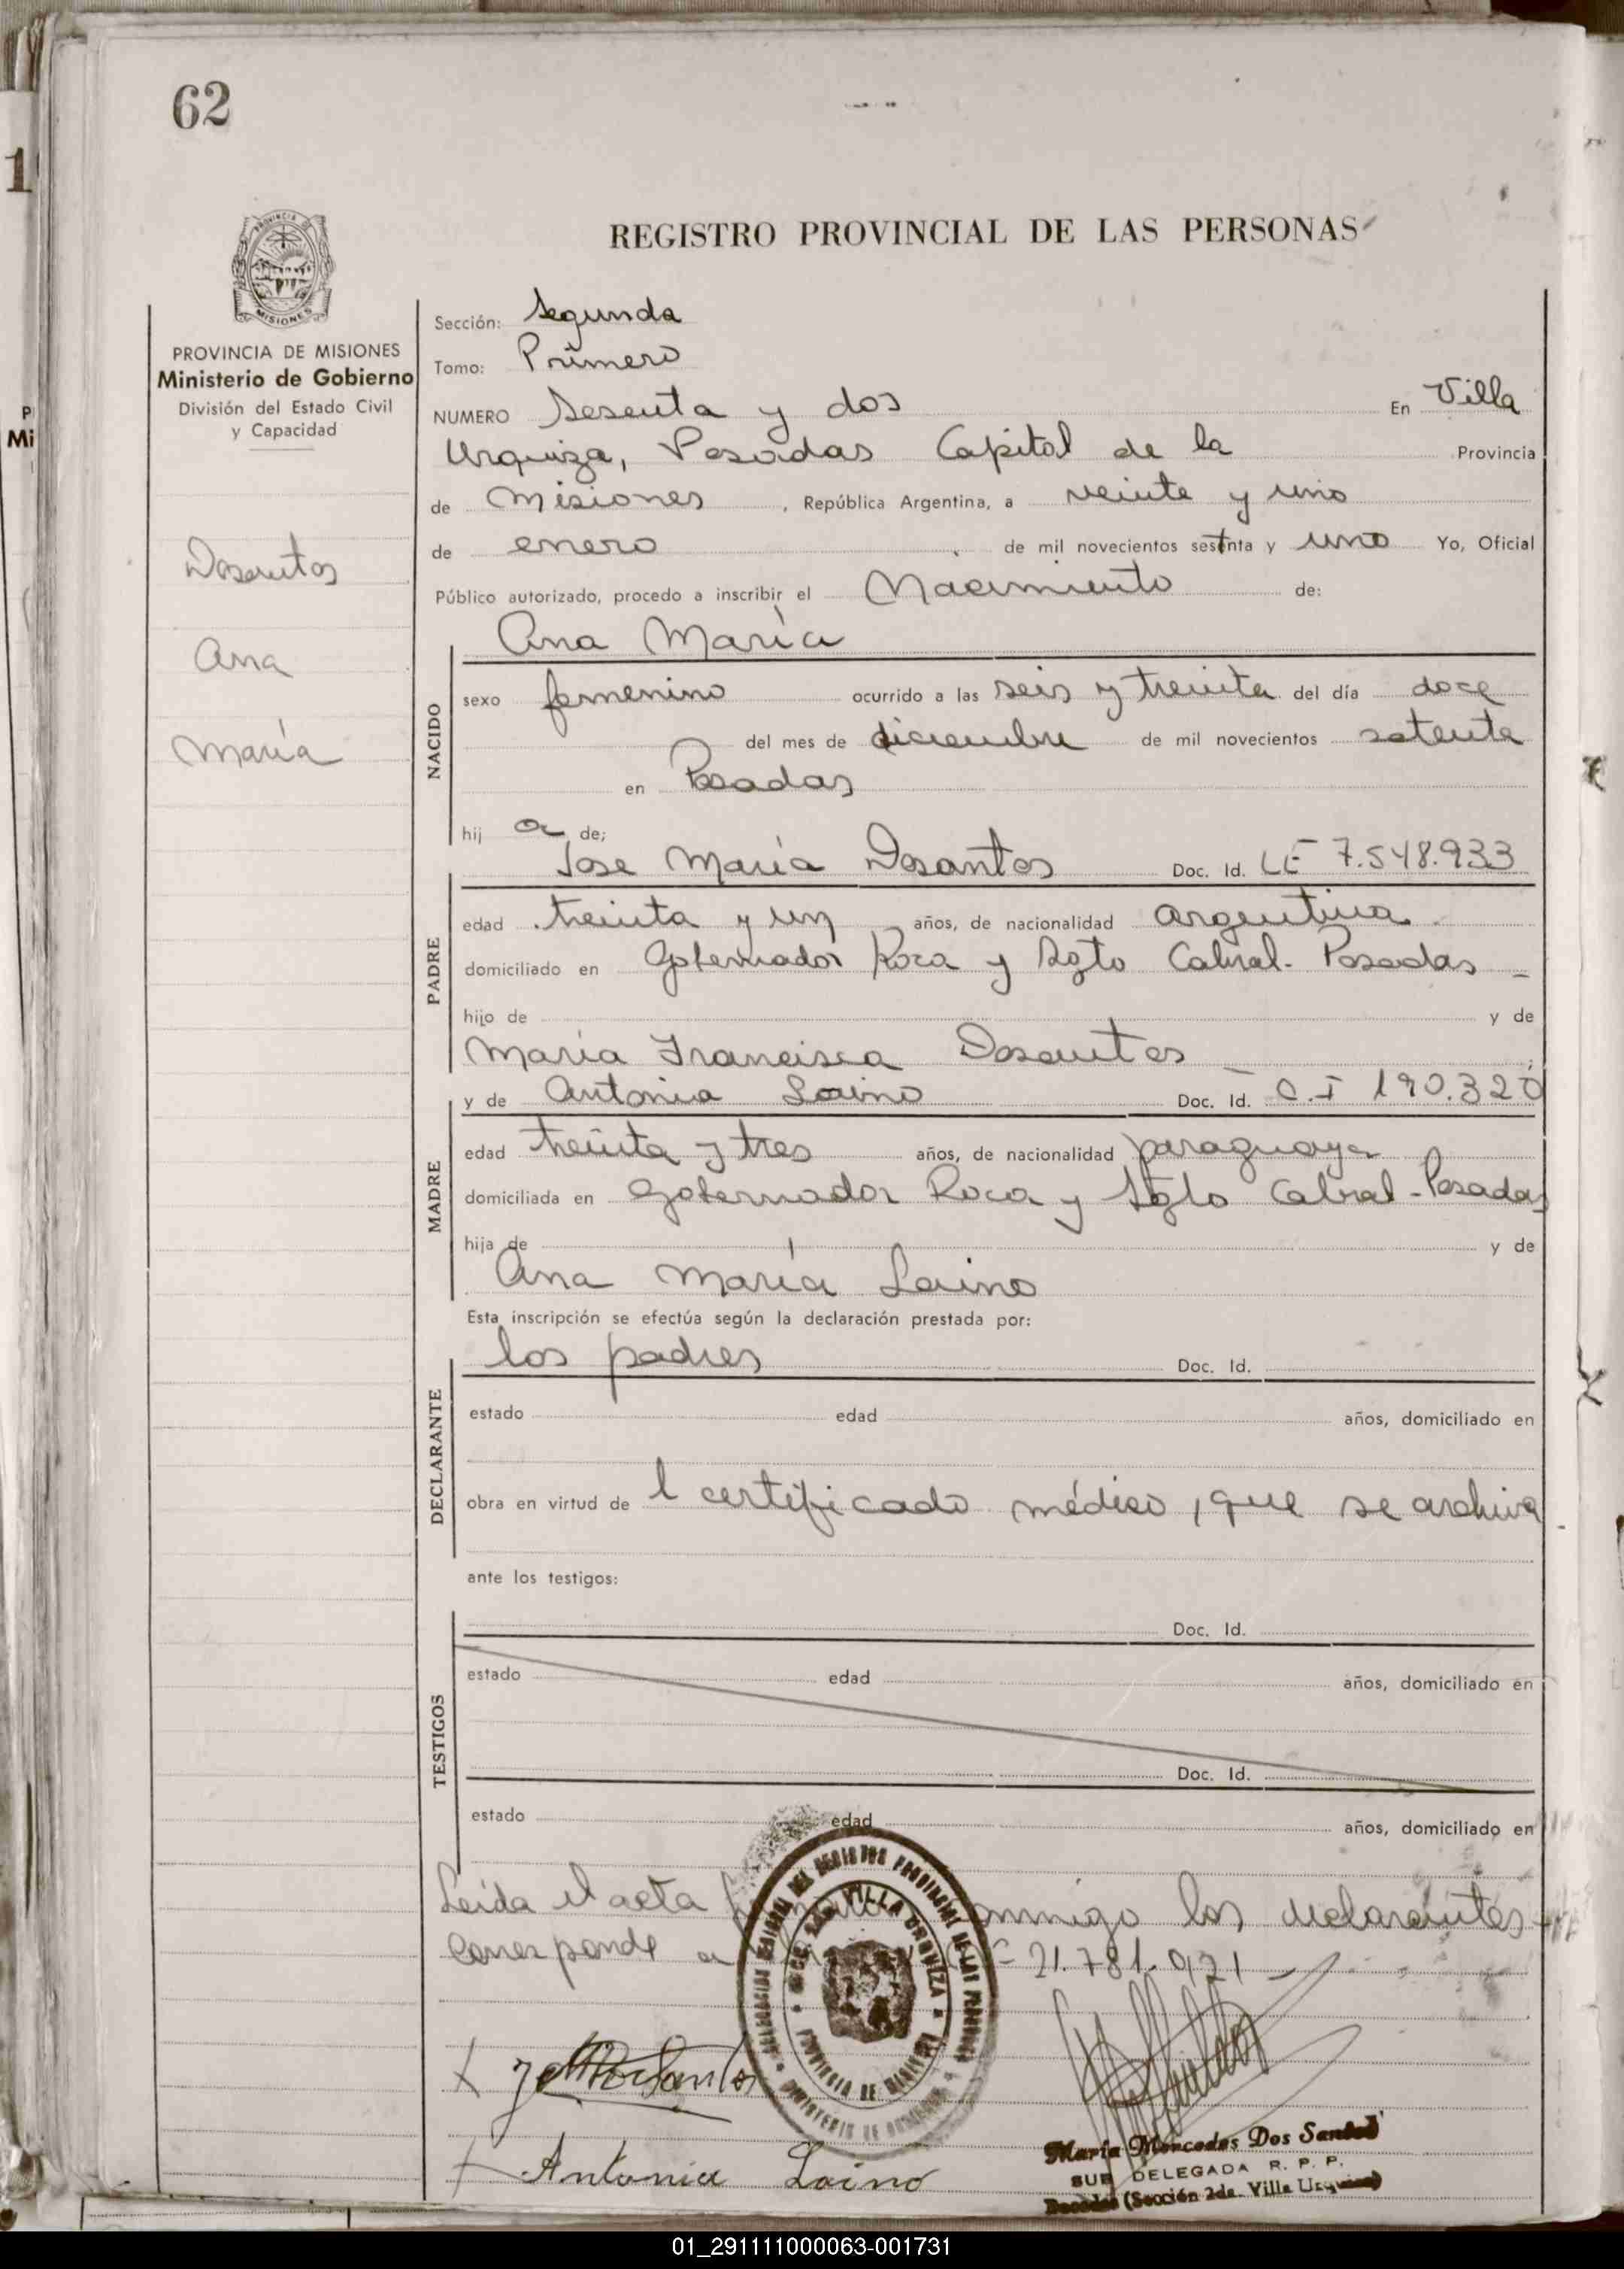 62
1
REGISTRO PROVINCIAL DE LAS PERSONAS
PROVINCIA DE MISIONES
Ministerio de Gobierno
División del Estado Civil
y Capacidad
Dosantos
Ana
María
Sección: Segunda
Tomo: Primero
NUMERO Sesenta y dos En Villa
Urquiza, Posadas Capital de la Provincia
de Misiones, República Argentina, a veinte y uno
de enero de mil novecientos setenta y uno Yo, Oficial
Público autorizado, procedo a inscribir el Nacimiento de:
Ana María
NACIDO
sexo femenino ocurrido a las seis y treinta del día doce
del mes de diciembre de mil novecientos setenta
en Posadas
hij a de;
Jose María Dosantos Doc. Id. LE 7.548.933
PADRE
edad treinta y un años, de nacionalidad argentina
domiciliado en Gobernador Roca y Sgto Cabral - Posadas -
hijo de y de
María Francisca Dosantos ;
y de Antonia Laino Doc. Id. C.I 190.320
MADRE
edad treinta y tres años, de nacionalidad paraguaya
domiciliada en Gobernador Roca y Sgto Cabral - Posadas
hija de y de
Ana María Laino
Esta inscripción se efectúa según la declaración prestada por:
los padres Doc. Id.
DECLARANTE
estado edad años, domiciliado en
obra en virtud de l certificado médico, que se archiva
ante los testigos:
TESTIGOS
Doc. Id.
estado edad años, domiciliado en
Doc. Id.
estado edad años, domiciliado en
Leida el acta conmigo los declarantes
Corresponde a 21.781.971 -
VILLA URQUIZA
PROVINCIA DE MISIONES
Antonia Laino
María Mercedes Dos Santos
SUB DELEGADA R. P. P.
Posadas (Sección 2da. Villa Urquiza)
01_291111000063-001731